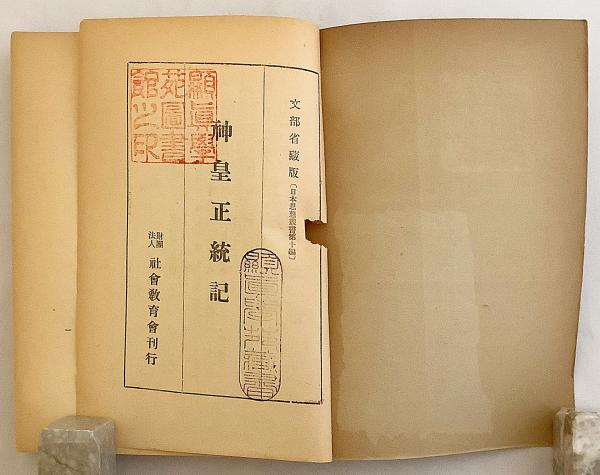 文部省藏版〔日本思想叢書第十編〕
神皇正統記
財團法人 社會教育會刊行
顯眞學
苑圖書
館之印
一